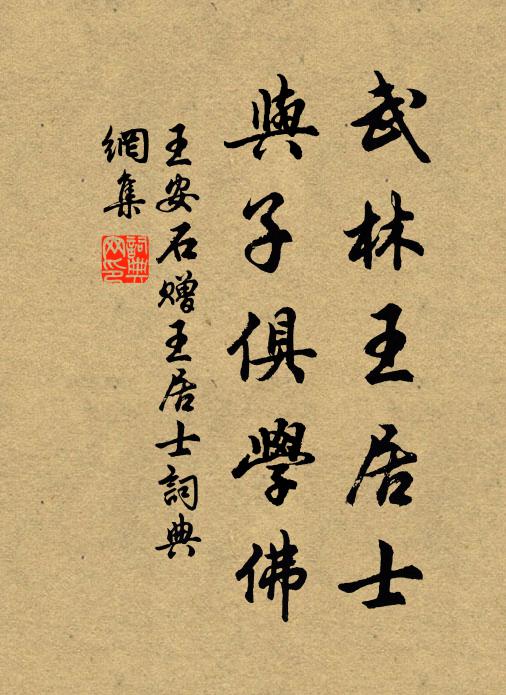 武林王居士
與子俱學佛
王安石赠王居士詞典
網集
詞典网印